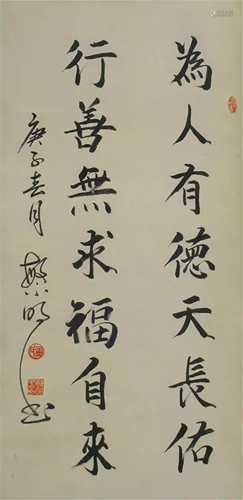 為人有德天長佑
行善無求福自來
庚子春月